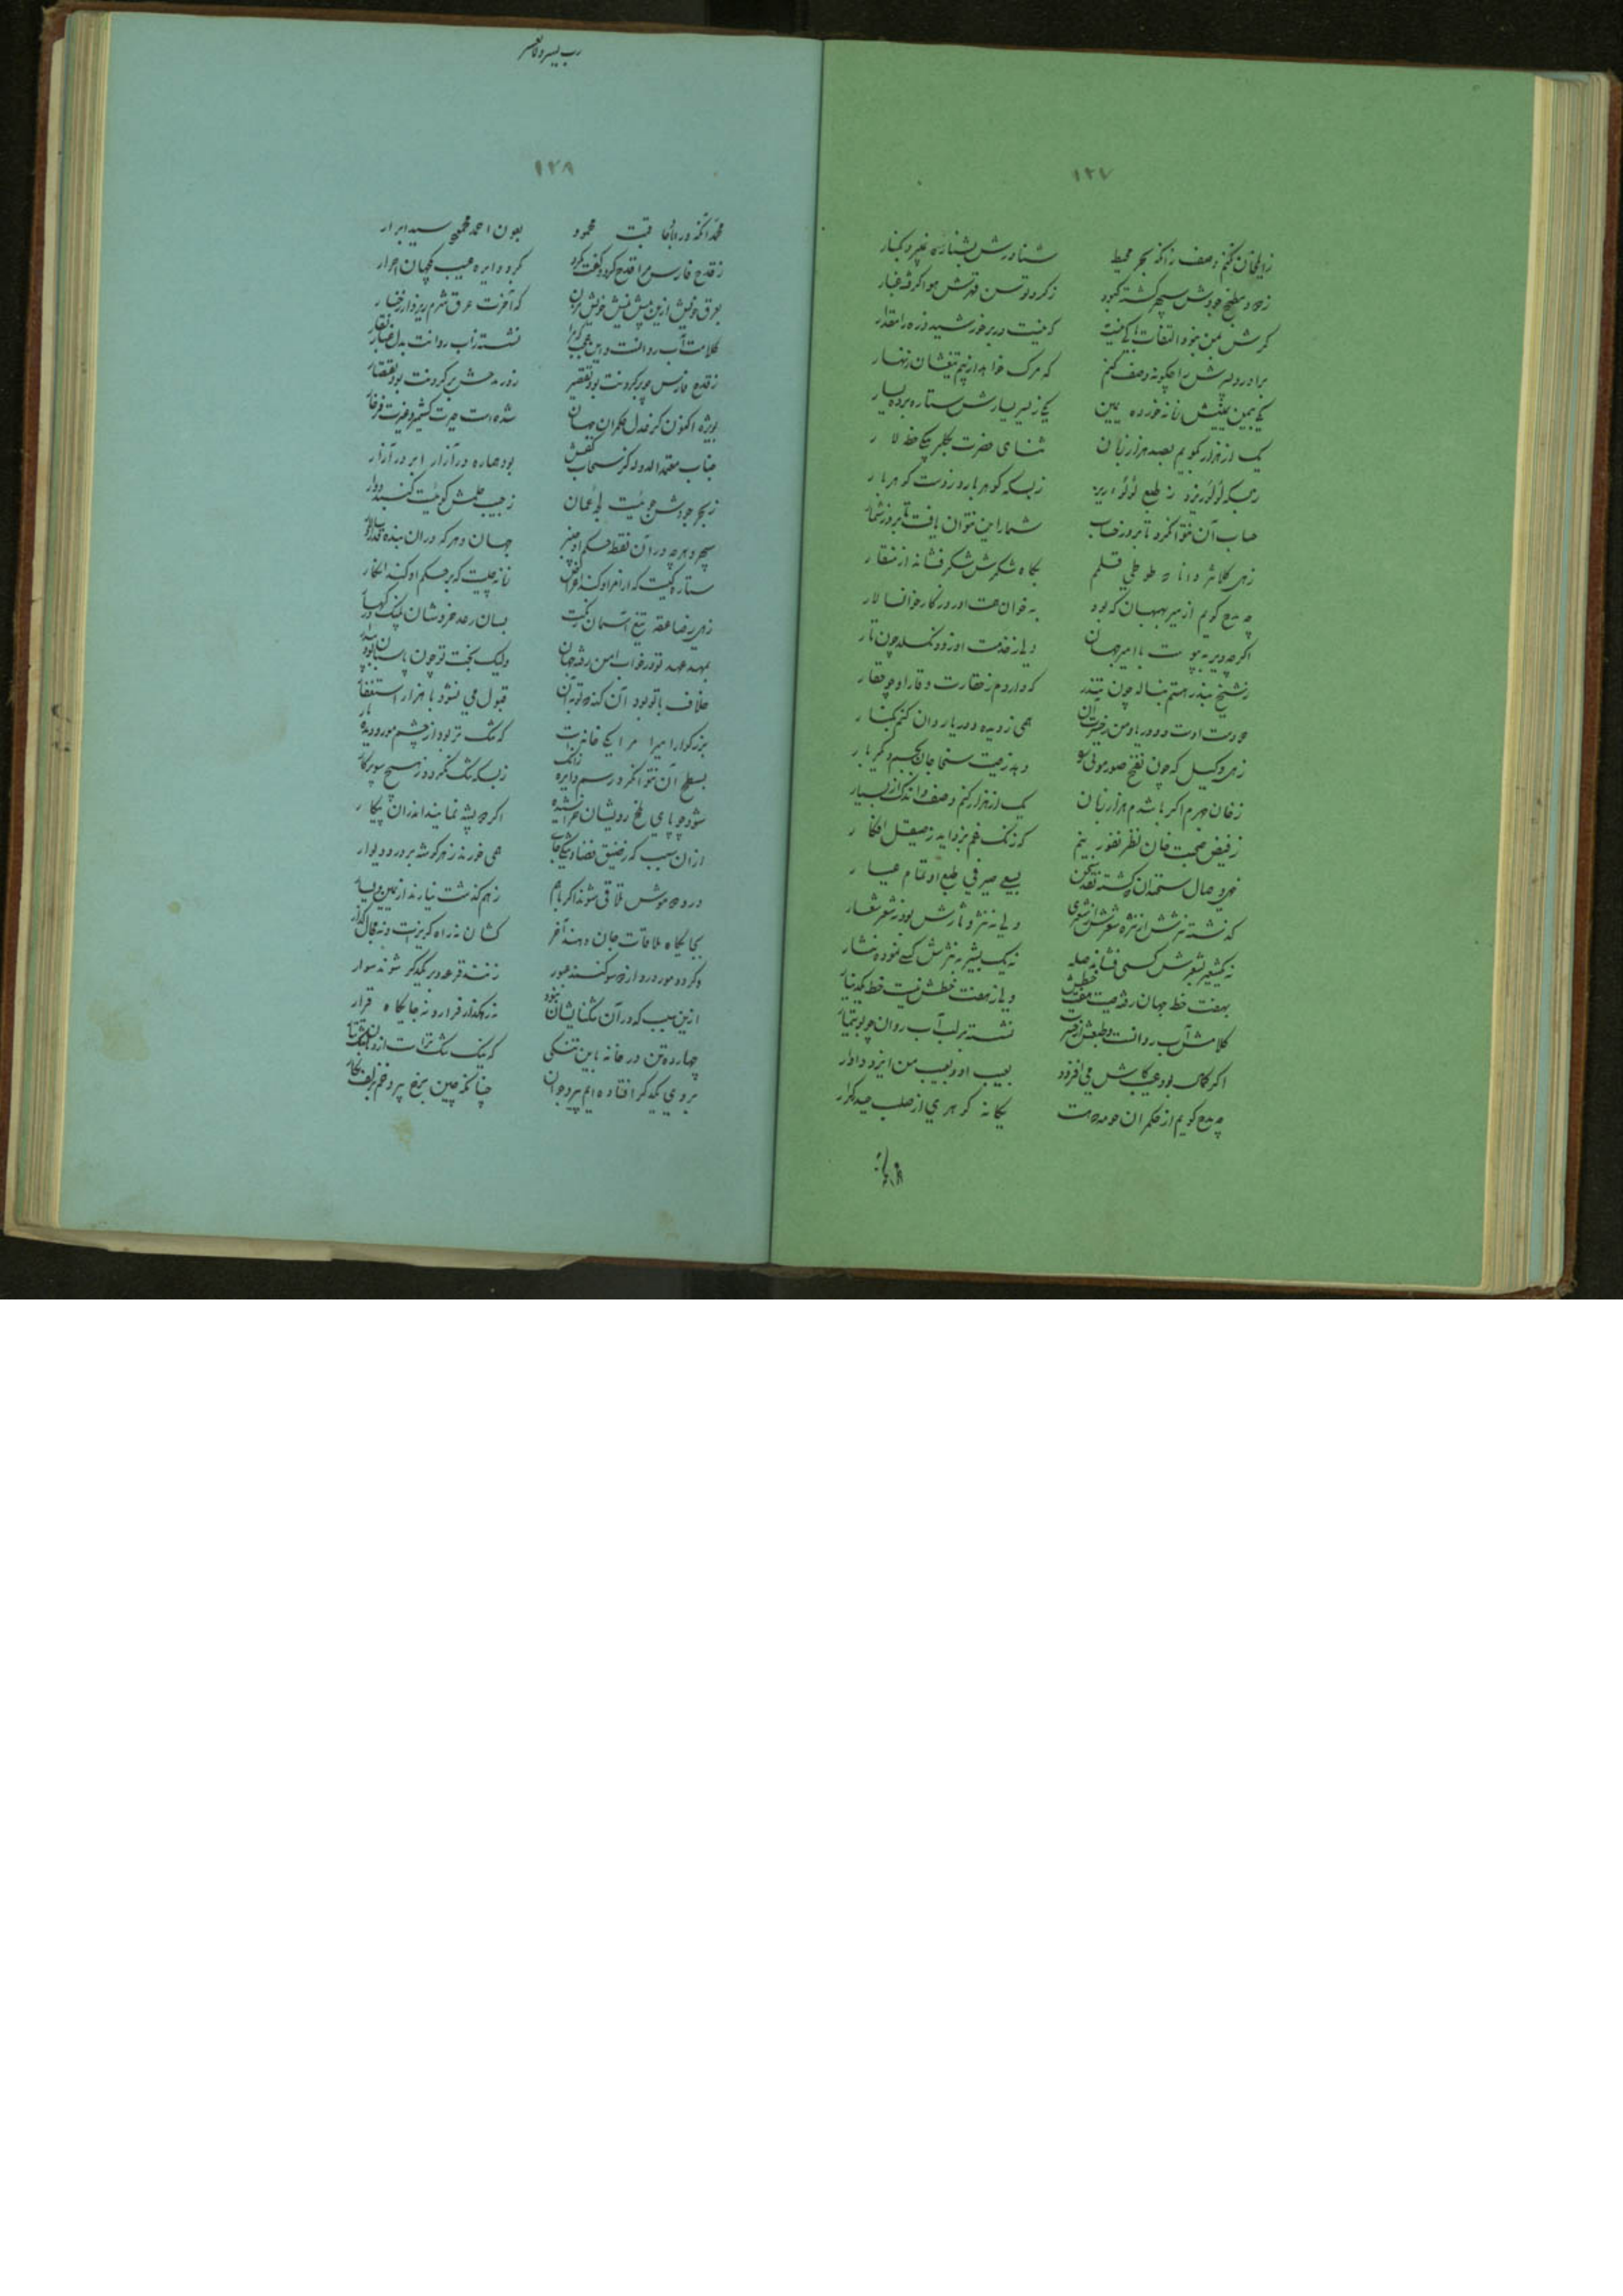 ۱۲۷
زایلخان نکنم وصف زانکه بحر محیط شناورش بشناه نبرد بکنار
ز دود مطبخ جودش سپهر گشته کبود ز گرد توسن قدرش هوا گرفته غبار
گرش بمن نبود التفات باکی نیست که نیست در بر خورشید ذره را مقدار
برادر و پسرش را چگونه وصف کنم که مرگ خواهد از بیم تیغشان زنهار
یکی بیمن یمینش زمانه خورده یمین یکی ز یسر یسارش ستاره برده یسار
یک از هزار نگویم بصد هزار زبان ثنای حضرت
زبسکه لؤلؤ ریزد ز طبع لؤلؤ ریز زبسکه گوهر بارد ز دست گوهر بار
حساب آن نتوان کرد تا بروز حساب شمار این نتوان یافت تا بروز شمار
زهی کلانتر دانا که طوطی قلمم بگاه شکرش شکر فشاند از منقار
چه مدح گویم از میر بهبهان که بود به خوان همت او روزگار خوانسالار
اگر چه دیر به پیوست با امیر جهان ولی ز خدمت او زود نگسلد چون تار
ز شیخ بندر هستم بناله چون تندر که دارم ز حقارت وقار او چو حقار
دو دست اوست دو دریا و من ز حسرت آن همی ز دیده دو دریا روان کنم بکنار
زهی وکیل که چون نفخ صور موتی را دمد ز میت سخا جان بجسم دیگر بار
ز خان جهرم اگر باشدم هزار زبان یک از هزار نکنم وصف و اندک از بسیار
ز فیض صحبت خان نظر نفور نیم که زنگ غم بزداید ز صیقل افکار
گذشته نثرش از نثره شعرش از شعری ولی نه نثر دثارش بود نه شعر شعار
نه یک شعیر بشعرش کسی فشانده صله نه یک پشیز به نثرش کسی نموده نثار
بهفت خط جهان رفته صیت هفت خطش ولی ز هفت خطش نیست خط یکدینار
کلامش آب روانست و طبعش از حسرت نشسته بر لب آب روان چو بوتیمار
اگر کمال بود عیب کاش می افزود بعیب او و بعیب من ایزد دادار
چه مدح گویم از حکمران حومه که هست یگانه گوهری از صلب حیدر کرار
رب یسر و لا تعسر
۱۲۸
محمد آنکه در عاقبت محمود بعون احمد محمود سید ابرار
ز قدح فارس مرا قدح کرد و گفت که گرد دایره عیب کجهان احرار
بعرق خویش ازین بیش نیش خویش مزن که آخرت عرق شرم ریزد از رخسار
کلامت آب روانست و این عجب که ترا نشسته زاب روانت بدل غبار نقار
ز قدح فارس چو بر گردنت بود تقصیر ز مدحش بر گردنت بود تقصار
بویژه اکنون کز عدل حکمران جهان شده است حیرت کشمیر و غیرت فرخار
جناب معتمدالدوله کز سحاب کفش بود هماره در آزار ابر در آزار
ز بحر جودش جوئیست لجه عمان ز جیب حلمش گوئیست گنبد دوار
سپهر و هر چه در آن نقطه حکم او چنبر جهان و هر که در آن بنده و قدر او سالار
ستاره کیست که از امر او کند اعراض زمانه چیست که بر حکم او کند انکار
زهی ز صاعقه تیغ آسمان رنگت بسان رعد خروشان پلنگ در کهسار
بمهد عهد تو در خواب امن رفته جهان ولیک بخت تو چون پاسبان بود بیدار
خلاف با تو بود آن گنه که توبه آن قبول می نشود با هزار استغفار
بزرگوارا میرا مرا یکی خانه است که تنگ تر بود از چشم مور و دیده مار
بسطح آن نتوان کرد رسم دایره زانک زبسکه تنگ نگردد ز هیچ سو پرگار
شود چو پای ملخ رویشان خراشیده اگر دو پشه نمایند اندران پیکار
از آن سبب که ز ضیق فضا و تنگی جای همی خورند ز هر گوشه بر در و دیوار
درو دو موش ملاقی شوند اگر با هم ز هم گذشت نیارند از یمین و یسار
بجایگاه ملاقات جان دهند آخر کشان نه راه گریزست و نه مجال گذار
وگر دو مور درو از دو سو کنند عبور زنند قرعه و بر یکدگر شوند سوار
ازین سبب که در آن تنگنا نبود نه رهگذار فرار و نه جایگاه قرار
چهارده تن در خانه باین تنگی که نیک تنگ ترست از دهان تنگ
بروی یکدگر افتاده ایم پیر و جوان چنانکه چین برخ پیر و خم بزلف نگار